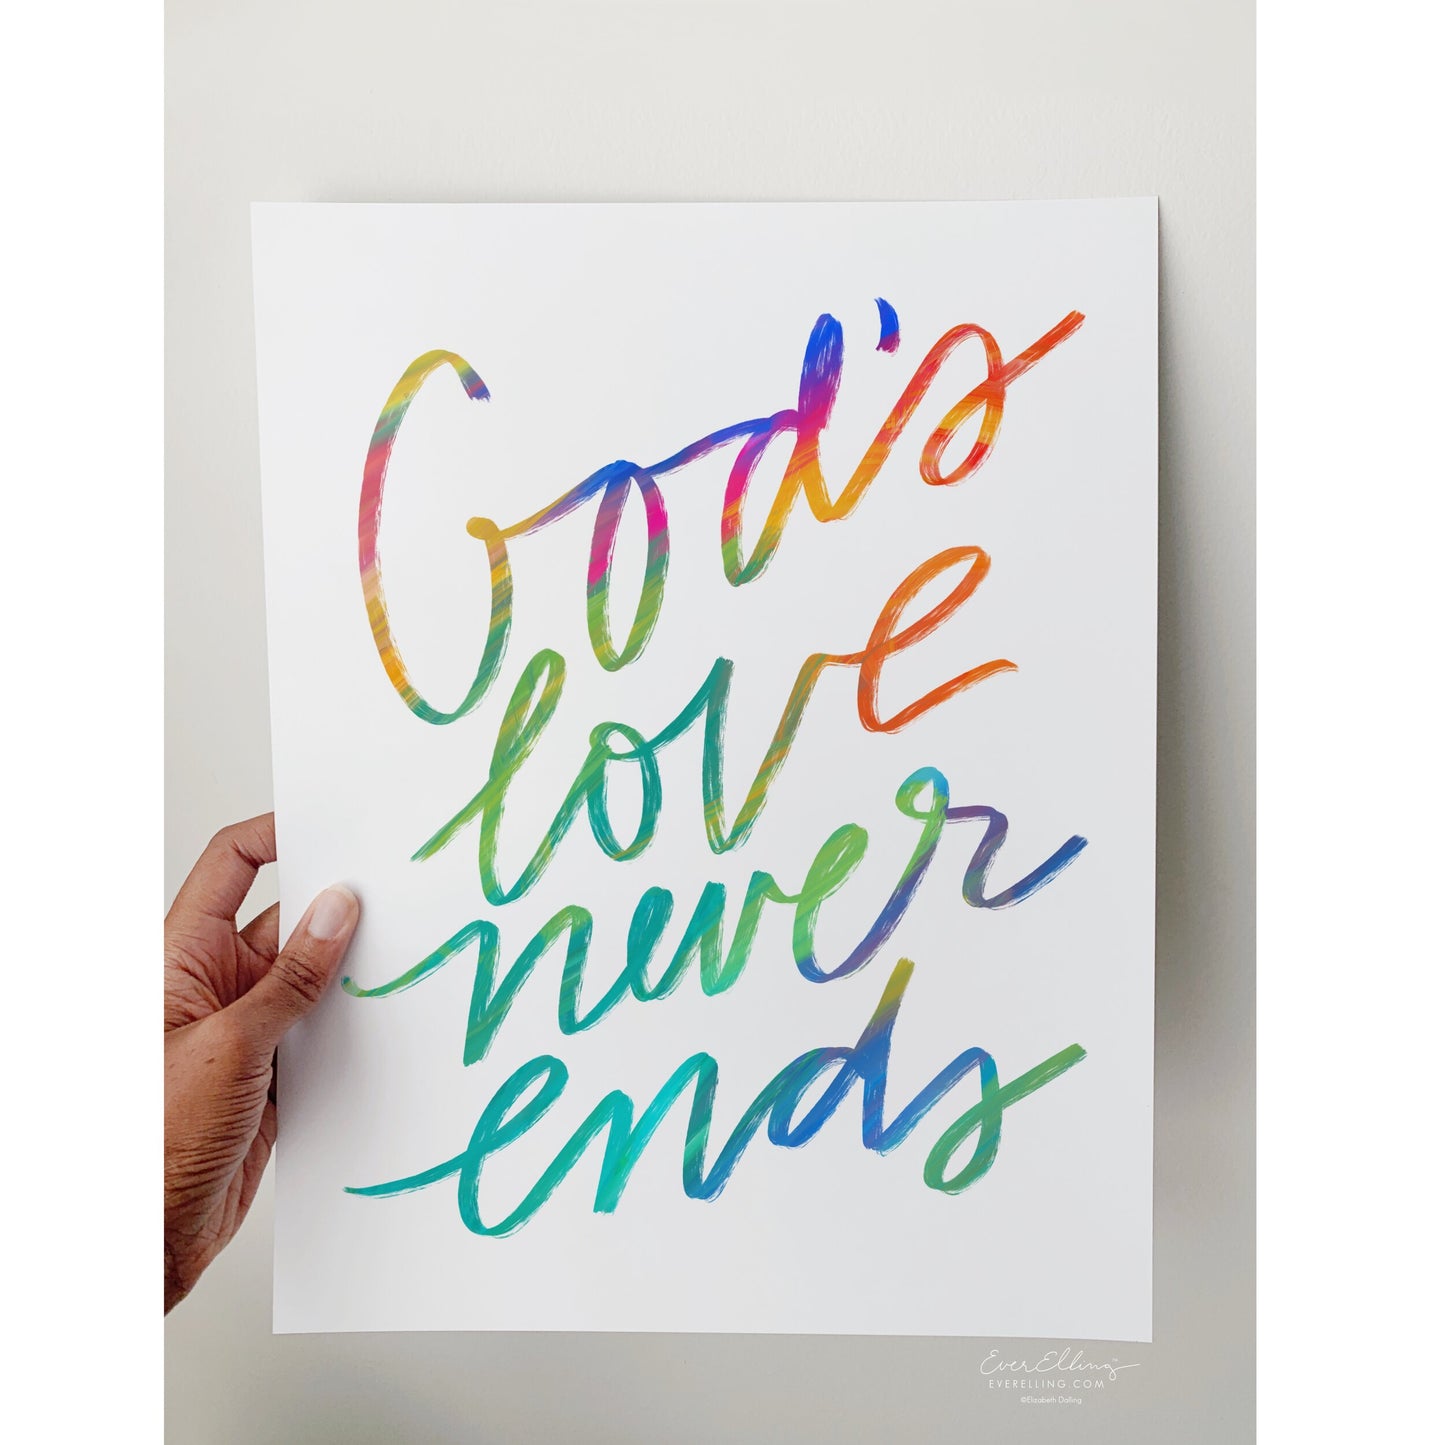 God's
love
never
ends
EverElling™
EVERELLING.COM
©Elizabeth Dalling